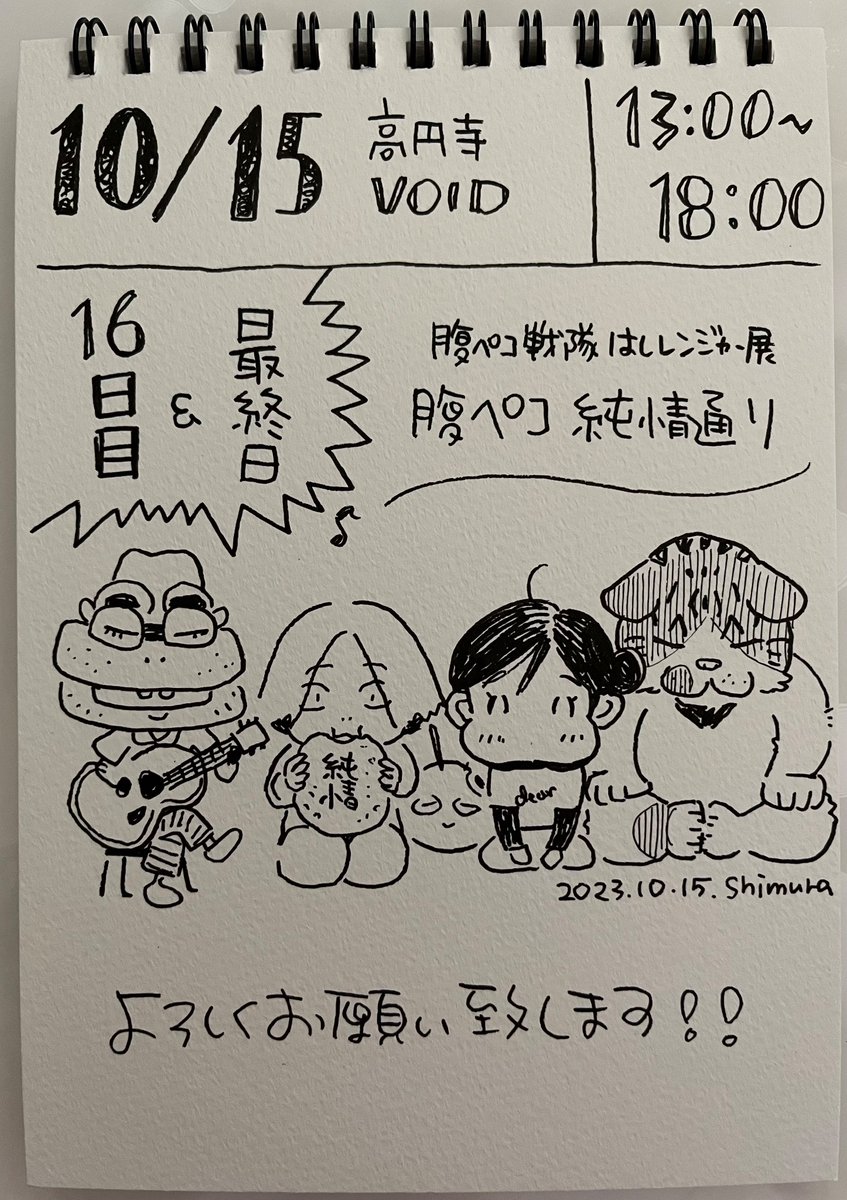 10/15
高円寺
VOID
13:00~
18:00
16日目
&
最終日
腹ペコ戦隊はしレンジャー展
腹ペコ 純情通り
純情
dear
2023.10.15. Shimura
よろしくお願い致します!!